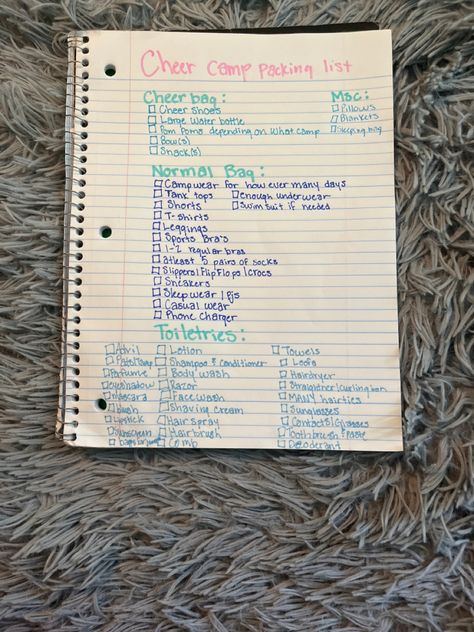 Cheer Camp Packing list
Cheer bag:
Cheer Shoes
Large Water bottle
Pom Poms depending on what camp
Bow(s)
Snack(s)
Msc:
Pillows
Blankets
Sleeping bag
Normal Bag:
Camp wear for how ever many days
Tank tops
Enough underwear
Shorts
Swim suit if needed
T-shirts
Leggings
Sports Bra's
1-2 regular bras
atleast 5 pairs of socks
Slippers/FlipFlops/crocs
Sneakers
Sleepwear/Pjs
Casual wear
Phone Charger
Toiletries:
Advil
Pads/Tamp
Perfume
eyeshadow
Mascara
blush
Lipstick
Sunscreen
Lotion
Shampoo & Conditioner
Body wash
Razor
Face wash
Shaving cream
Hair spray
Hairbrush
Comb
Towels
Loofa
Hairdryer
Straightener/Curling Iron
MANY hairties
Sunglasses
Contacts/Glasses
Toothbrush & Paste
Deodorant